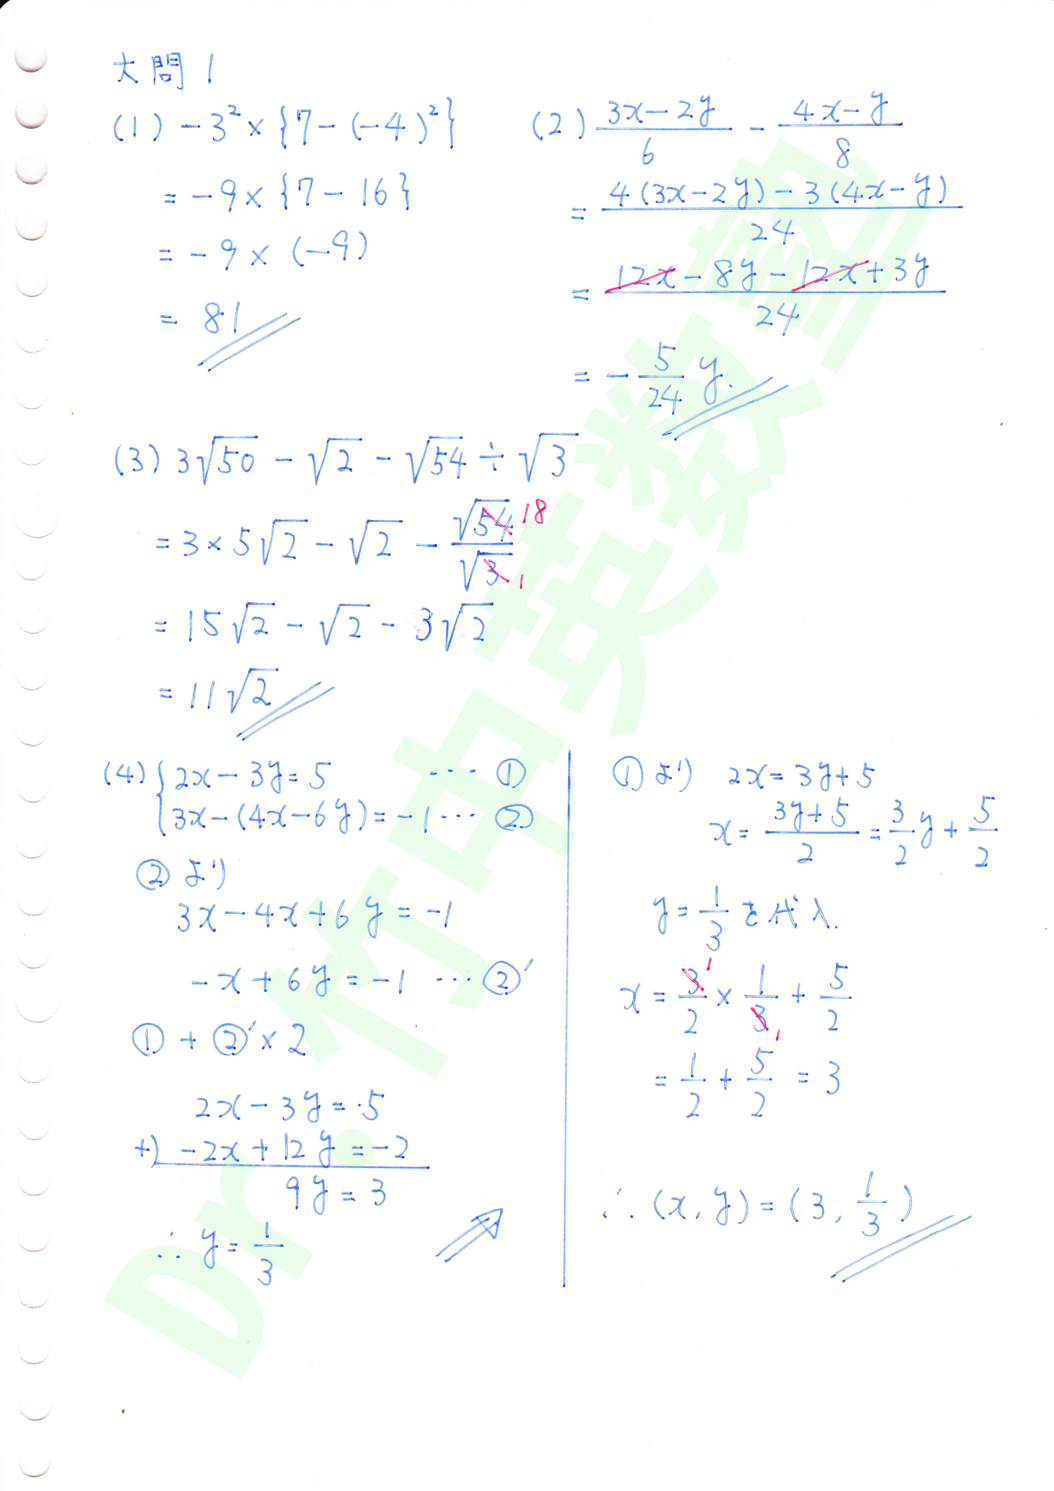 大問1
(1) -3² × {7-(-4)²}
= -9 × {7-16}
= -9 × (-9)
= 81
(2) (3x-2y)/6 - (4x-y)/8
= (4(3x-2y)-3(4x-y))/24
= (12x-8y-12x+3y)/24
= -5/24 y.
(3) 3√50 - √2 - √54 ÷ √3
= 3×5√2 - √2 - √54/√3 18 1
= 15√2 - √2 - 3√2
= 11√2
(4) { 2x-3y=5 … ①
3x-(4x-6y)=-1 … ②
②より
3x-4x+6y=-1
-x+6y=-1 … ②'
①+②'×2
2x-3y=5
+) -2x+12y=-2
9y=3
∴ y=1/3
①より 2x=3y+5
x=(3y+5)/2=3/2 y+5/2
y=1/3を代入.
x=3/2 × 1/3 + 5/2 1 1
=1/2+5/2=3
∴ (x, y)=(3, 1/3)
Dr.竹中英数塾